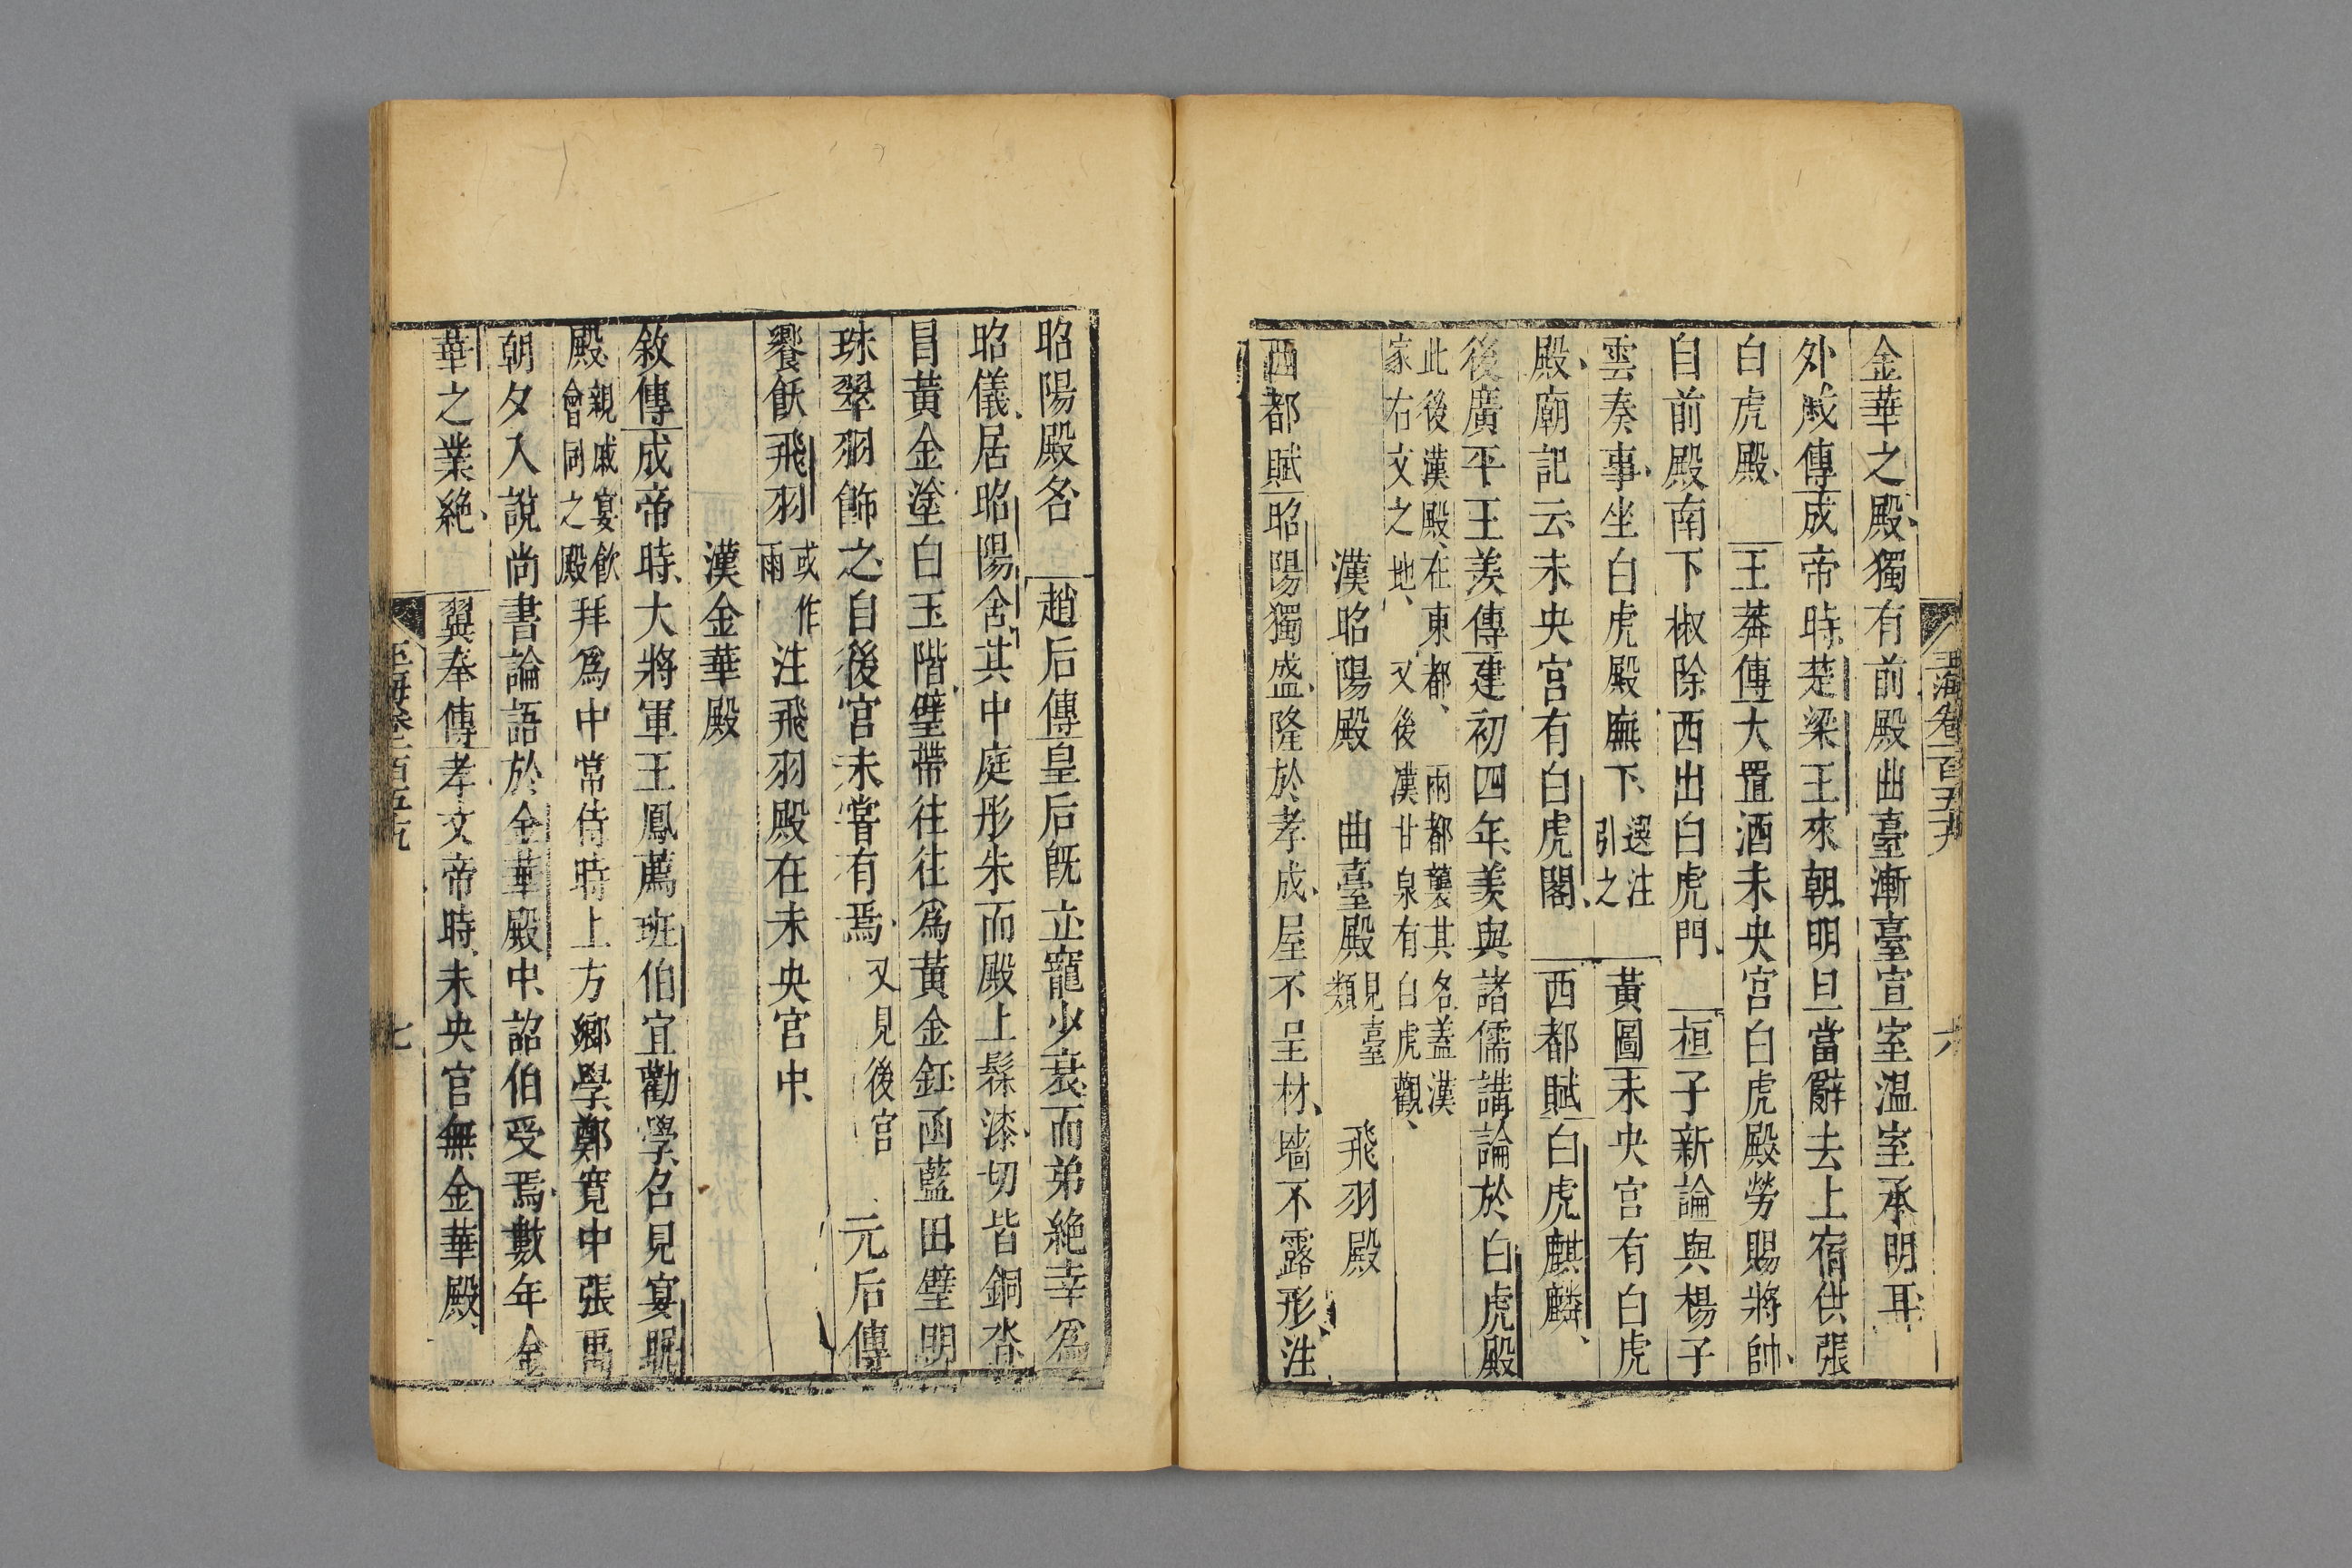 玉海卷一百五九 六
金華之殿獨有前殿曲臺漸臺宣室温室承明耳
外戚傳成帝時楚梁王來朝明旦當辭去上宿供張
白虎殿 王莽傳大置酒未央宮白虎殿勞賜將帥
自前殿南下椒除西出白虎門 桓子新論與楊子
雲奏事坐白虎殿廡下選注引之 黃圖未央宮有白虎
殿廟記云未央宮有白虎閣 西都賦白虎麒麟
後廣平王羨傳建初四年羨與諸儒講論於白虎殿
此後漢殿在東都兩都襲其名蓋漢
家右文之地又後漢甘泉有白虎觀
漢昭陽殿 曲臺殿見臺類 飛羽殿
西都賦昭陽獨盛隆於孝成屋不呈材墻不露形注
昭陽殿名 趙后傳皇后旣立寵少衰而弟絶幸爲
昭儀居昭陽舍其中庭彤朱而殿上髹漆切皆銅沓
冒黃金塗白玉階壁帶往往爲黃金釭函藍田璧明
珠翠羽飾之自後宮未嘗有焉又見後宮 元后傳
饗飲飛羽或作雨注飛羽殿在未央宮中
漢金華殿
敘傳成帝時大將軍王鳳薦班伯宜勸學召見宴昵
殿親戚宴飲會同之殿拜爲中常侍時上方鄉學鄭寬中張禹
朝夕入說尚書論語於金華殿中詔伯受焉數年金
華之業絶 翼奉傳孝文帝時未央宫無金華殿
玉海卷一百五十九 七